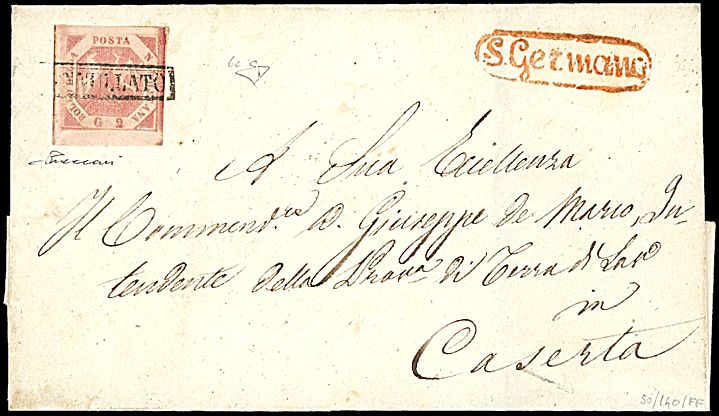 POSTA
NA
BOLLO
POLETANA
G 2
ANNULLATO
S. Germano
A Sua Eccellenza
Il Commend.re D. Giuseppe de Marco, In-
tendente della Prov.a di Terra di Lav.o
in
Caserta
50/140/FF